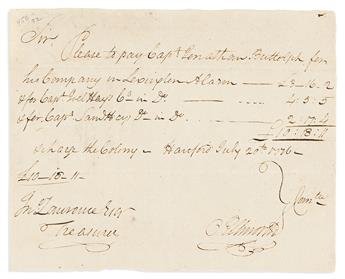 Sir,
Please to pay Capt Jonathan Buttolph for
his Company in Lexington Alarm — £3 - 16 - 2
& for Capt Joel Hays Co in Do — 4 : 5 : 5
& for Capt Saml Hays Do in Do — 2 : 17 : 4
£10 : 18 : 11
& charge the Colony — Hartford July 20th 1776 —
£10 - 18 - 11 -
Jno Lawrence Esqr
Treasurer
Comtee